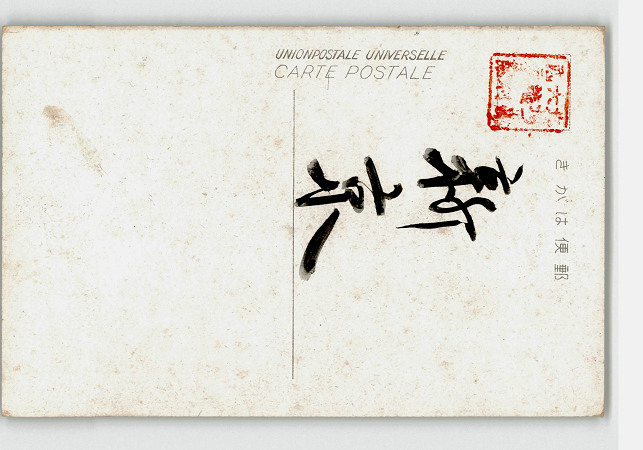 UNIONPOSTALE UNIVERSELLE
CARTE POSTALE
郵便はがき
新京